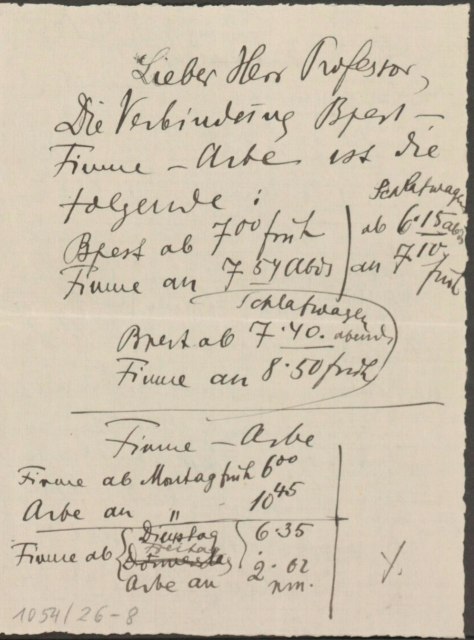 Lieber Herr Professor,
Die Verbindung Bpest –
Fiume – Arbe ist die
folgende :
Schlafwagen
Bpest ab 7 00 früh | ab 6·15 abds
Fiume an 7 54 Abds | an 7 10 früh
Schlafwagen
Bpest ab 7·40. abends
Fiume an 8·50 früh
Fiume – Arbe
Fiume ab Montag früh 6 00
Arbe an " 10 45
Fiume ab { Dienstag } 6·35
Freitag
Donnerstag
Arbe an 2·02
nm.
1054/26-8